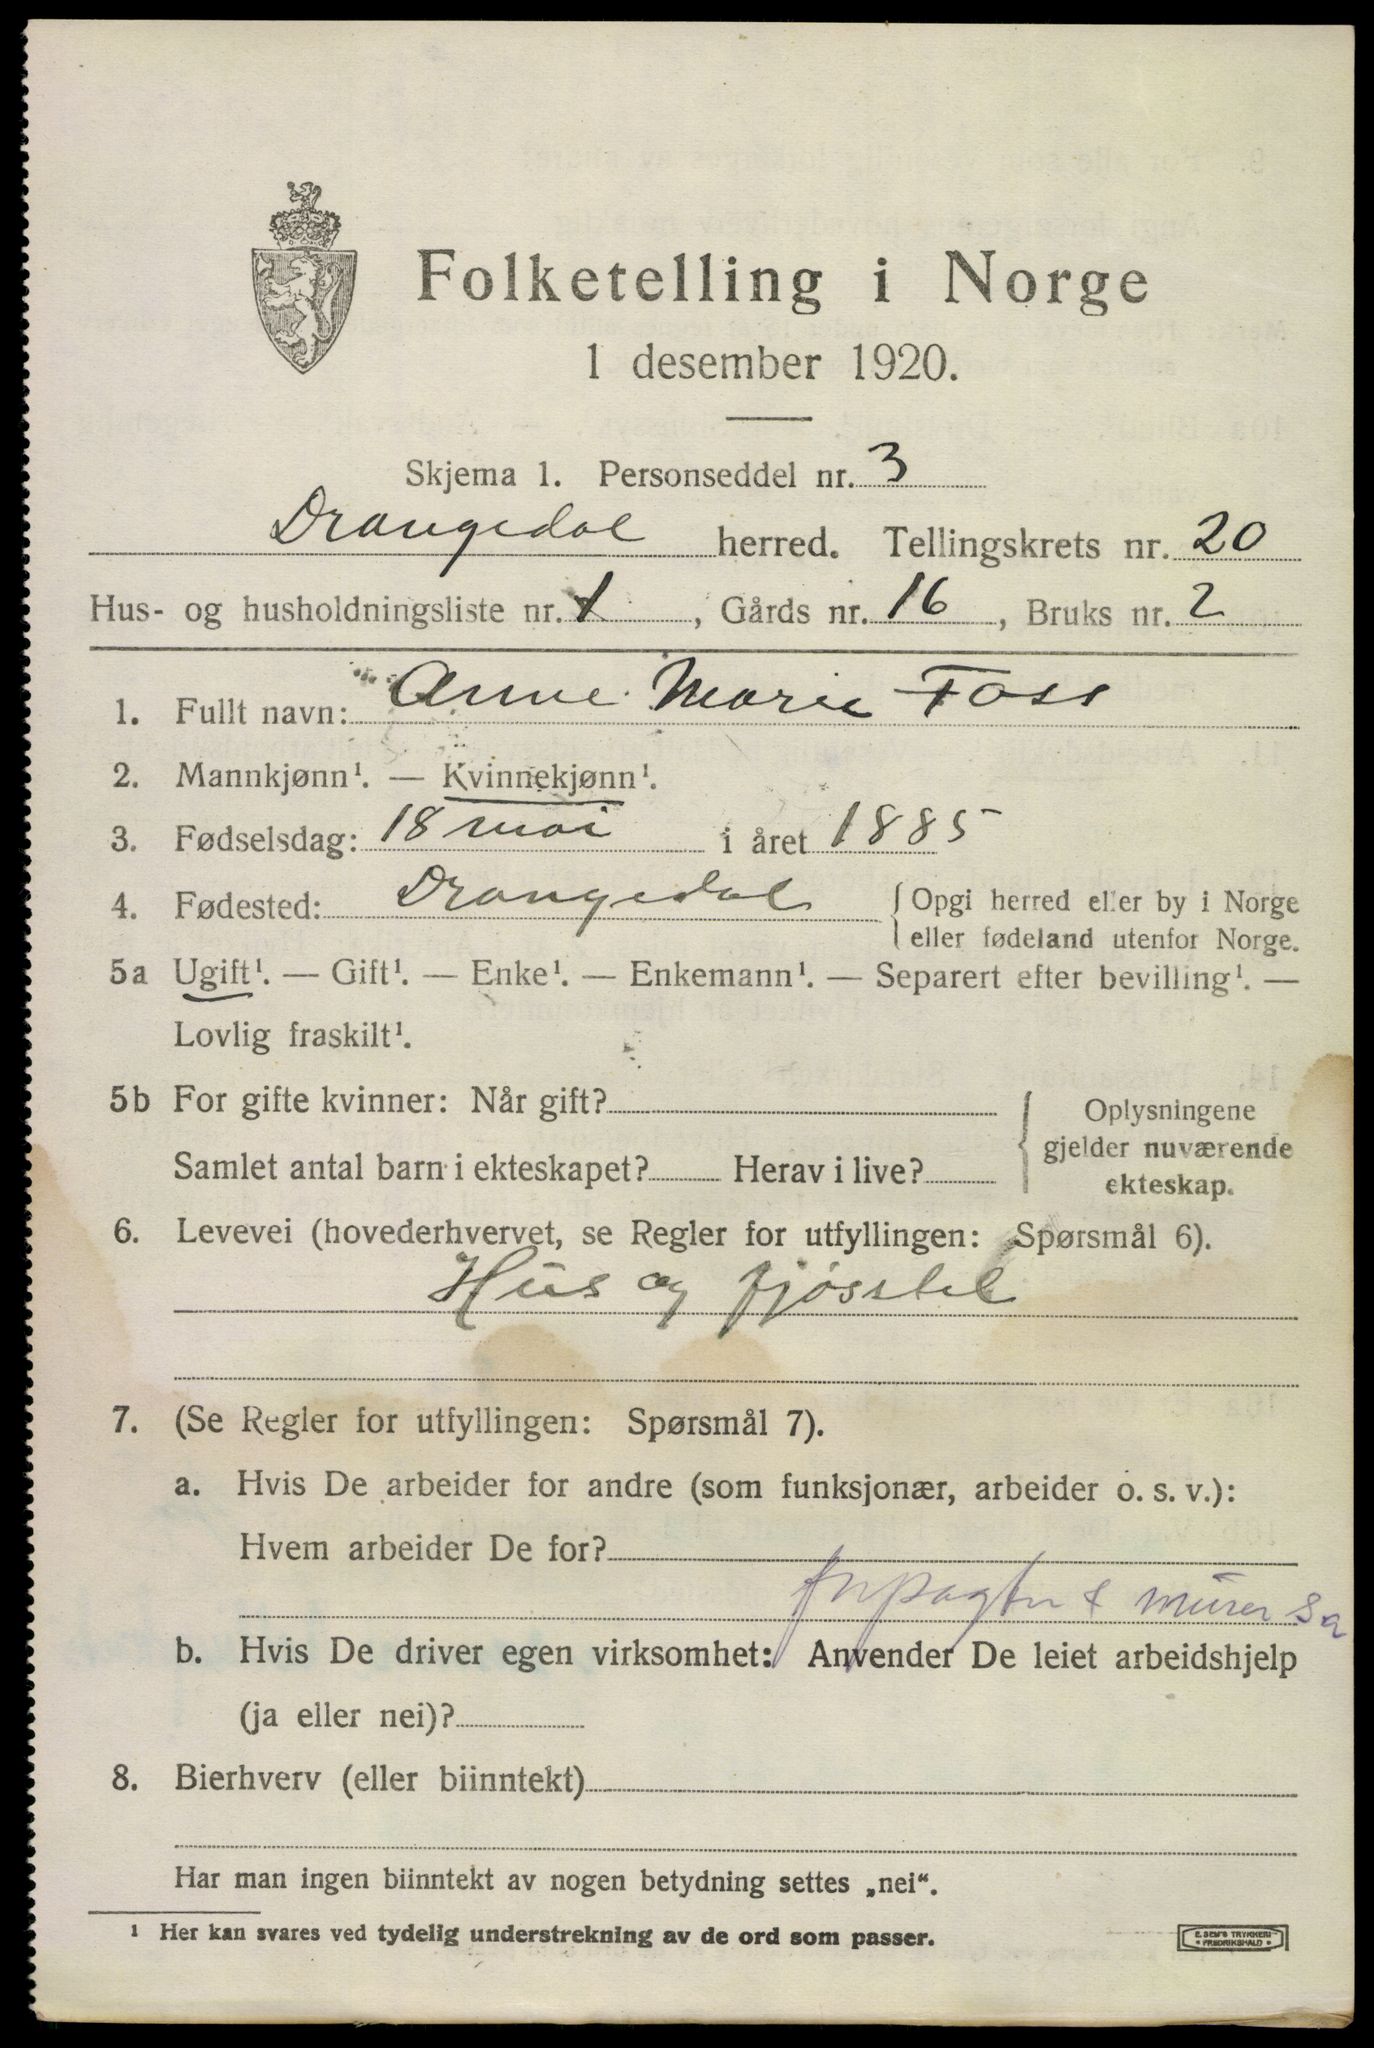 Folketelling i Norge
1 desember 1920.
Skjema 1. Personseddel nr. 3
Drangedal herred. Tellingskrets nr. 20
Hus- og husholdningsliste nr. 1, Gårds nr. 16, Bruks nr. 2
1. Fullt navn: Anne Marie Foss
2. Mannkjønn¹. — Kvinnekjønn¹.
3. Fødselsdag: 18 mai i året 1885
4. Fødested: Drangedal { Opgi herred eller by i Norge
eller fødeland utenfor Norge.
5a Ugift¹. — Gift¹. — Enke¹. — Enkemann¹. — Separert efter bevilling¹. —
Lovlig fraskilt¹.
5b For gifte kvinner: Når gift?
Samlet antal barn i ekteskapet? Herav i live?
{ Oplysningene
gjelder nuværende
ekteskap.
6. Levevei (hovederhvervet, se Regler for utfyllingen: Spørsmål 6).
Hus og fjøsstel
7. (Se Regler for utfyllingen: Spørsmål 7).
a. Hvis De arbeider for andre (som funksjonær, arbeider o. s. v.):
Hvem arbeider De for?
forpagter & murer
b. Hvis De driver egen virksomhet: Anvender De leiet arbeidshjelp
(ja eller nei)?
8. Bierhverv (eller biinntekt)
Har man ingen biinntekt av nogen betydning settes „nei“.
¹ Her kan svares ved tydelig understrekning av de ord som passer.
E. SEM'S TRYKKERI
• FREDRIKSHALD •